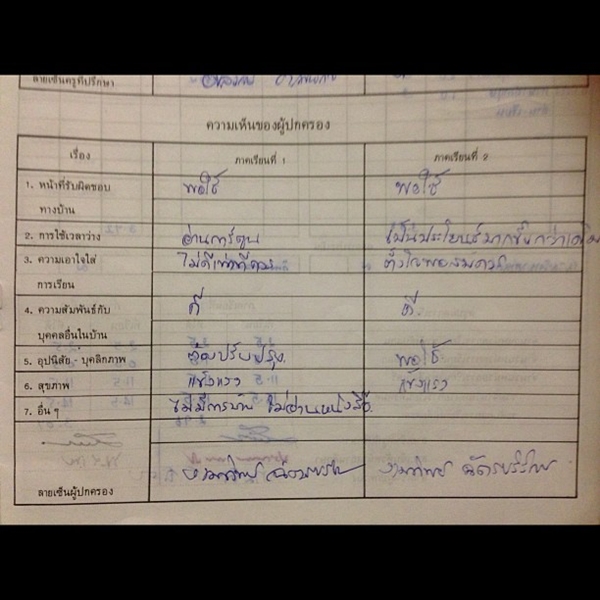 ลายเซ็นครูที่ปรึกษา
ความเห็นของผู้ปกครอง
เรื่อง ภาคเรียนที่ 1 ภาคเรียนที่ 2
1. หน้าที่รับผิดชอบ พอใช้ พอใช้
ทางบ้าน
2. การใช้เวลาว่าง อ่านการ์ตูน เป็นประโยชน์มากขึ้นกว่าเดิม
3. ความเอาใจใส่ ไม่ดีเท่าที่ควร ตั้งใจพอสมควร
การเรียน
4. ความสัมพันธ์กับ ดี ดี
บุคคลอื่นในบ้าน
5. อุปนิสัย - บุคลิกภาพ ต้องปรับปรุง พอใช้
6. สุขภาพ แข็งแรง แข็งแรง
7. อื่น ๆ ไม่มีการบ้าน ไม่อ่านหนังสือ
ลายเซ็นผู้ปกครอง